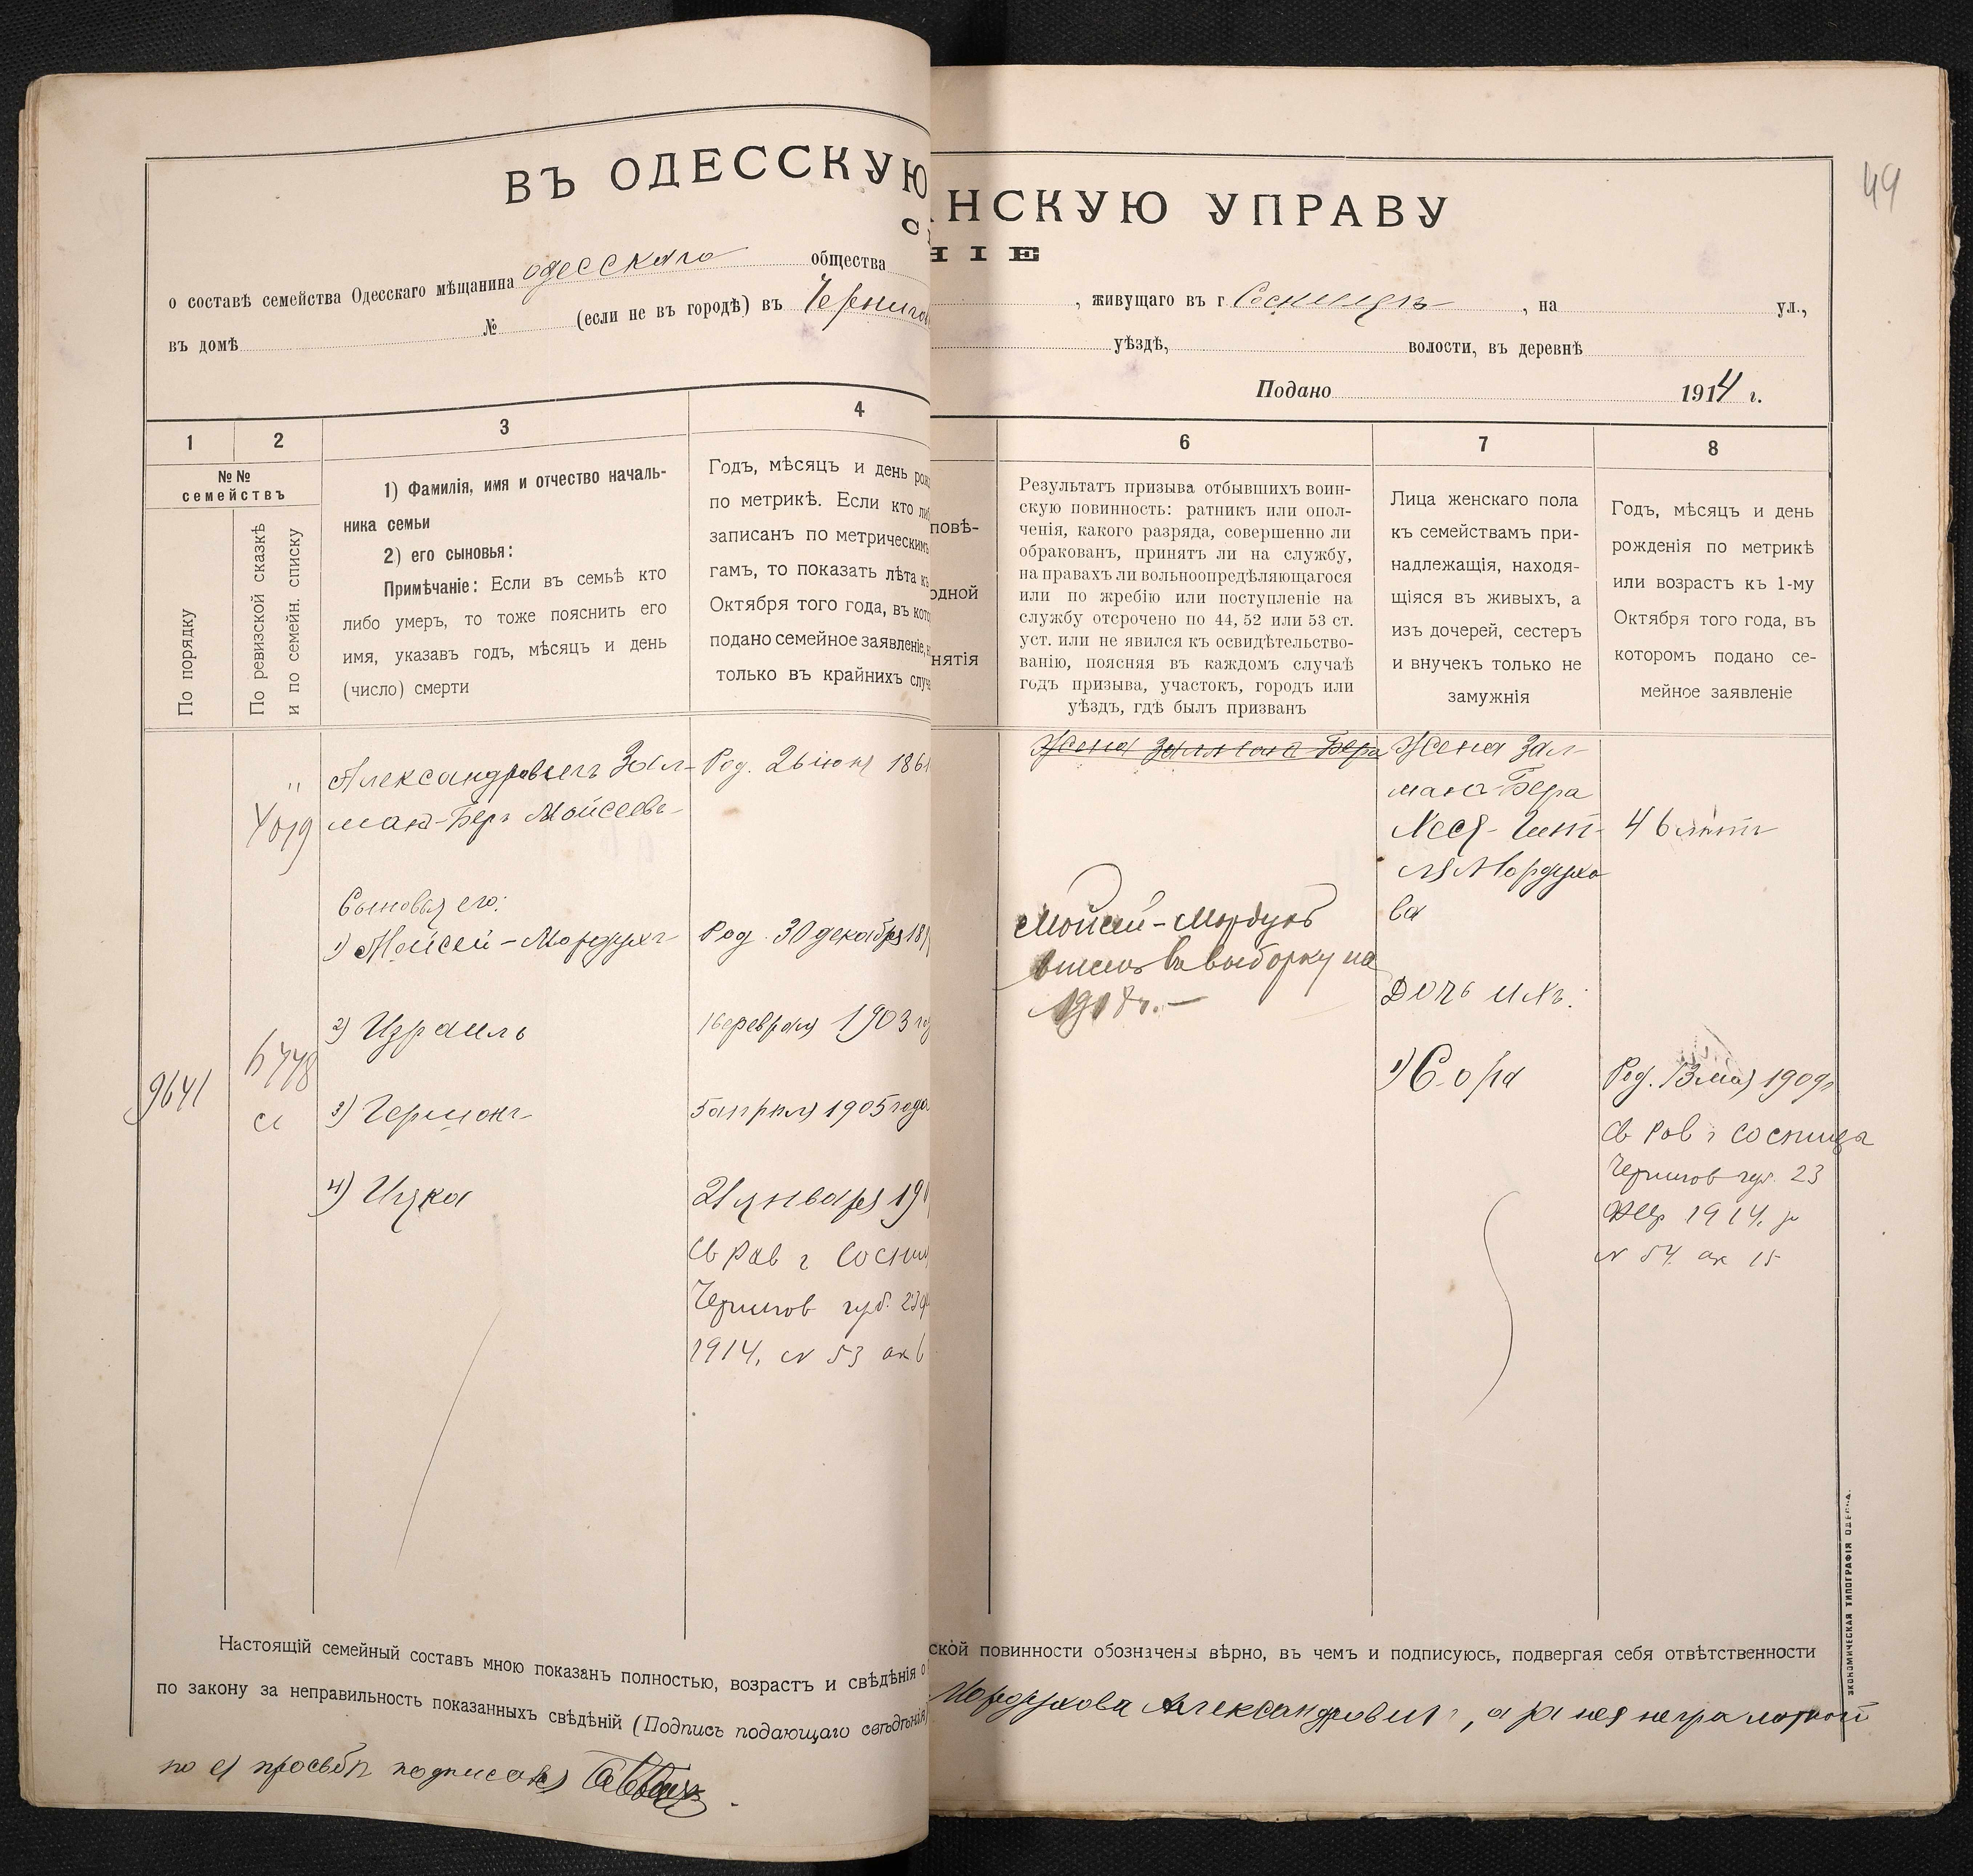 ВЪ ОДЕССКУЮ
о составѣ семейства Одесскаго мѣщанина одесскаго общества
въ домѣ № (если не въ городѣ) въ
1 2 3 4
№№
семействъ
По порядку
По ревизской сказкѣ
и по семейн. списку
1) Фамилія, имя и отчество началь-
ника семьи
2) его сыновья:
Примѣчаніе: Если въ семьѣ кто
либо умеръ, то тоже пояснить его
имя, указавъ годъ, мѣсяцъ и день
(число) смерти
Годъ, мѣсяцъ и день
по метрикѣ. Если кто
записанъ по метрическимъ
гамъ, то показать лѣта
Октября того года, въ
подано семейное заявленіе,
только въ крайнихъ
"
4019
Александровичъ Зал-
ман-Беръ Мойсеевъ
Род. 26 июня 186
Сыновья его:
1) Мойсей-Мордухъ
Род. 30 декабря 18
2) Израиль
16 февраля 1903
9641
6778
3) Герцонъ
5 апрѣля 1905 года
4) Ицка
21 января 19
Св Рав г Сосниц
Чернигов губ. 23
1914, N 53 ак 6
Настоящій семейный составъ мною показанъ полностью, возрастъ и свѣдѣнія о
по закону за неправильность показанныхъ свѣдѣній (Подпись подающаго свѣдѣнія)
по ея просьбѣ подписался
49
НСКУЮ УПРАВУ
НІЕ
, живущаго въ г Сосницѣ , на ул.,
уѣздѣ, волости, въ деревнѣ
Подано 1914 г.
6 7 8
повѣ-
одной
нятія
Результатъ призыва отбывшихъ воин-
скую повинность: ратникъ или опол-
ченія, какого разряда, совершенно ли
обракованъ, принятъ ли на службу,
на правахъ ли вольноопредѣляющагося
или по жребію или поступленіе на
службу отсрочено по 44, 52 или 53 ст.
уст. или не явился къ освидѣтельство-
ванію, поясняя въ каждомъ случаѣ
годъ призыва, участокъ, городъ или
уѣздъ, гдѣ былъ призванъ
Лица женскаго пола
къ семействамъ при-
надлежащія, находя-
щіяся въ живыхъ, а
изъ дочерей, сестеръ
и внучекъ только не
замужнія
Годъ, мѣсяцъ и день
рожденія по метрикѣ
или возрастъ къ 1-му
Октября того года, въ
которомъ подано се-
мейное заявленіе
Жена Залмана Бера
Мойсей-Мордухъ
внесенъ въ выборку на
1918 г.
Жена Зал-
мана-Бера
Неся-Гит-
ля Мордухо
ва
46 лѣтъ
Дочь ихъ:
1) Сора
Род. 13 мая 1909 г
Св Рав г Сосница
Чернигов губ. 23
1914, за
N 54 ак 15
ской повинности обозначены вѣрно, въ чемъ и подписуюсь, подвергая себя отвѣтственности
Мордухова Александровичъ, а за нея неграмотной
ЭКОНОМИЧЕСКАЯ ТИПОГРАФІЯ ОДЕССА.